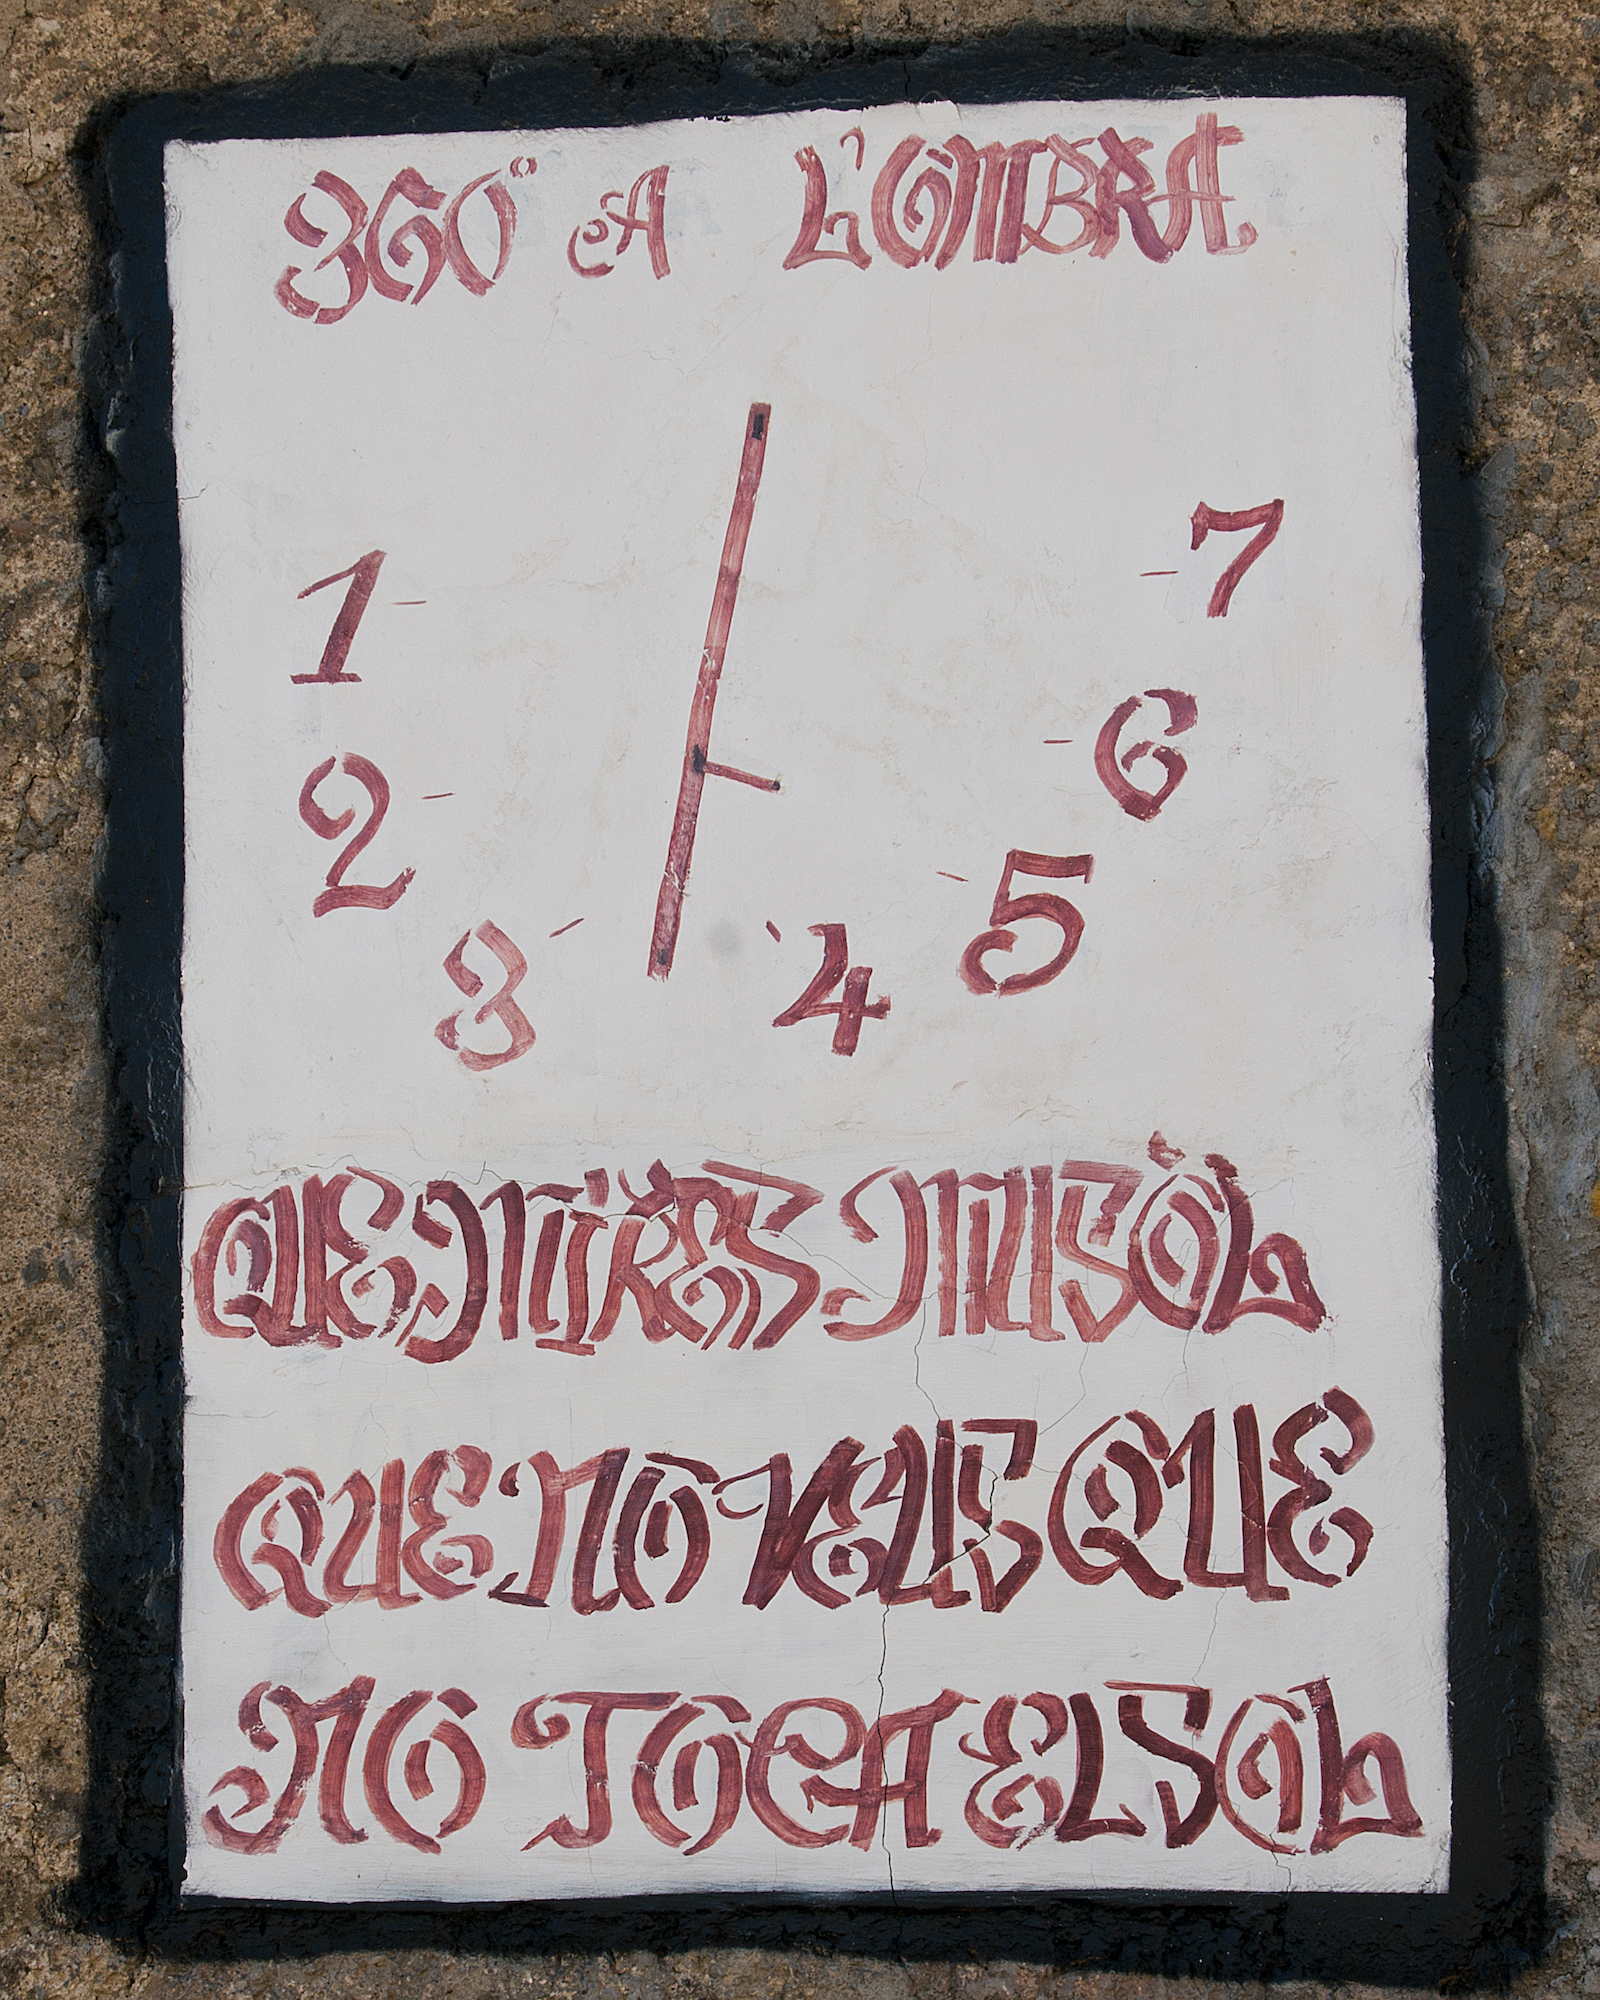 360º A L'OMBRA
1
2
3
4
5
6
7
QUE MIRES MUSÒL
QUE NO VEUS QUE
NO TOCA EL SOL